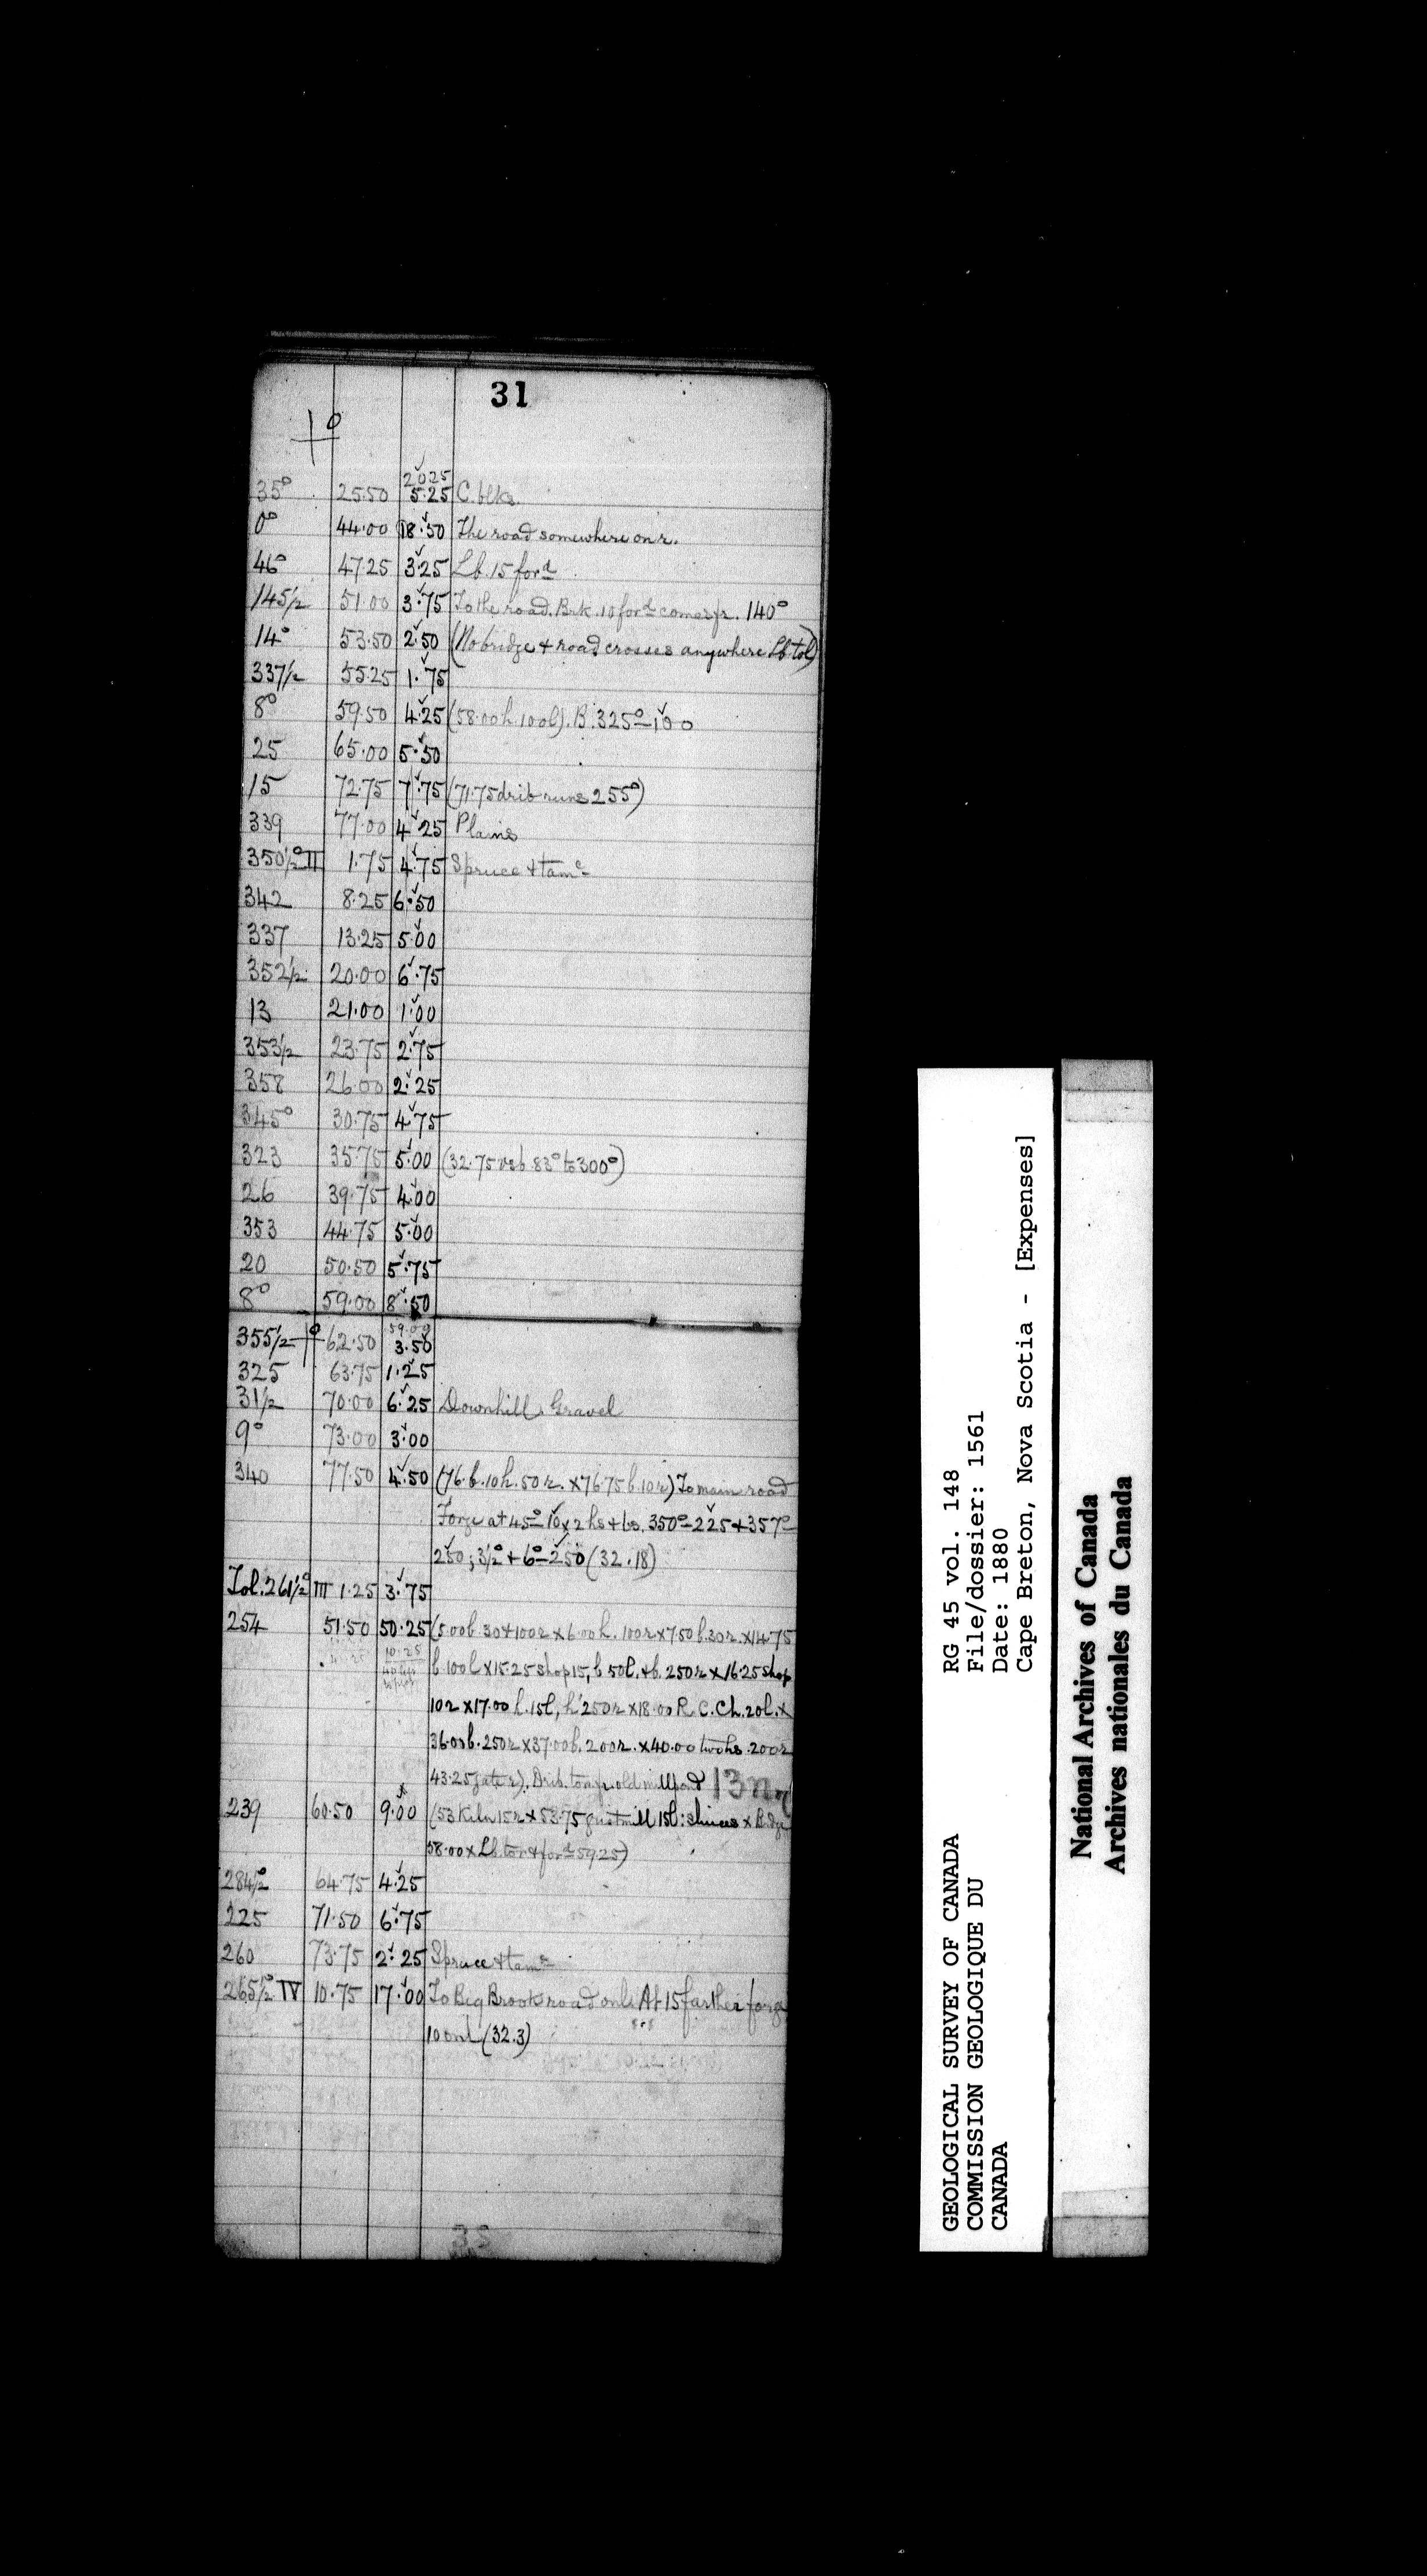 31
20.25
35° 25.50 5.25 C. blks.
0° 44.00 18.50 The road somewhere on r.
46° 47.25 3.25 Lb. 15 for^d
145½ 51.00 3.75 To the road. Brk. 10 for^d comes fr. 140°
14° 53.50 2.50 (No bridge + road crosses anywhere Lb to l)
337½ 55.25 1.75
8° 59.50 4.25 (58.00 h. 100l). B. 325°-100
25 65.00 5.50
15 72.75 7.75 (71.75 drib runs 255°)
339 77.00 4.25 Plains
350½° II 1.75 4.75 Spruce + tam^c
342 8.25 6.50
337 13.25 5.00
352½ 20.00 6.75
13 21.00 1.00
353½ 23.75 2.75
358 26.00 2.25
345° 30.75 4.75
323 35.75 5.00 (32.75 83° to 300°)
26 39.75 4.00
353 44.75 5.00
20 50.50 5.75
8° 59.00 8.50
59.00
355½ 62.50 3.50
325 63.75 1.25
31½ 70.00 6.25 Downhill. Gravel
9° 73.00 3.00
340 77.50 4.50 (76. b. 10 h. 50 r. x 76.75 b. 10 r) To main road
Forge at 45°-10 x 2 hs + bs. 350°-225 + 357°-
250; 3½° + 6°-250 (32.18)
Tol. 261½° III 1.25 3.75
254 51.50 50.25 (5.00 b. 30 + 100 r x 6.00 h. 100 r x 7.50 b. 30 r. x 14.75
10.25
b. 100 l x 15.25 shop 15, b 50 l. + b. 250 r x 16.25 shop
10 r x 17.00 h. 15 l, h' 250 r x 18.00 R. C. Ch. 20 l. x
36.00 b. 250 r x 37.00 b. 200 r. x 40.00 two hs. 200 r
43.25 gate r). Drib. to r. fr. old mill pond 13
239 60.50 9.00 (53 Kiln 15 r x 53.75 gristmill 15 l: sluices x Bridge
58.00 x Lb. to r + for^d 59.25)
284½° 64.75 4.25
225 71.50 6.75
260 73.75 2.25 Spruce + tam^c
265½° IV 10.75 17.00 To Big Brook road on l. At 15 farther forge
10 on l (32.3)
GEOLOGICAL SURVEY OF CANADA
COMMISSION GEOLOGIQUE DU
CANADA
RG 45 vol. 148
File/dossier: 1561
Date: 1880
Cape Breton, Nova Scotia - [Expenses]
National Archives of Canada
Archives nationales du Canada